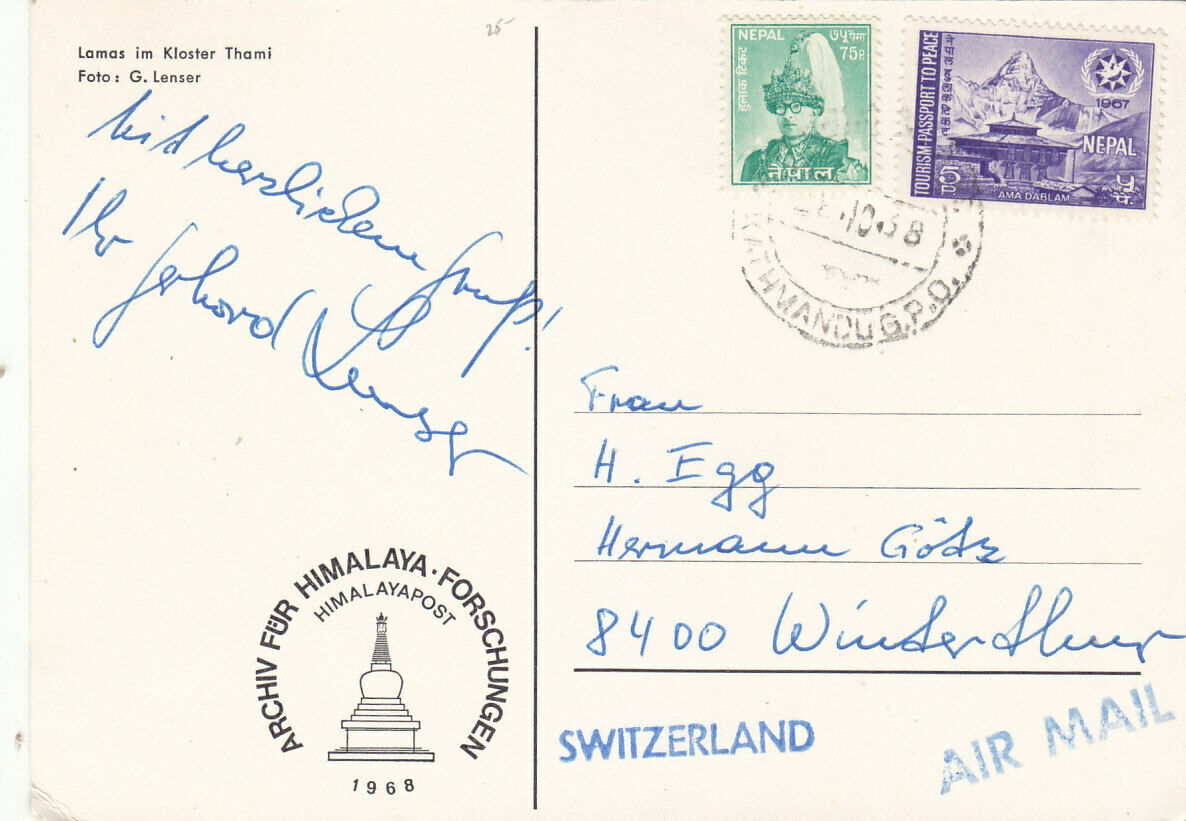 Lamas im Kloster Thami
Foto : G. Lenser
25-
Mit herzlichem Gruß!
Ihr Gerhard Lenser
ARCHIV FÜR HIMALAYA·FORSCHUNGEN
HIMALAYAPOST
1968
NEPAL ७५ पैसा
75 P.
हुलाक टिकट
नेपाल
TOURISM-PASSPORT TO PEACE
1967
NEPAL
5
AMA DABLAM
10.68
KATHMANDU G.P.O.
Frau
H. Egg
Hermann Götz
8400 Winterthur
SWITZERLAND
AIR MAIL